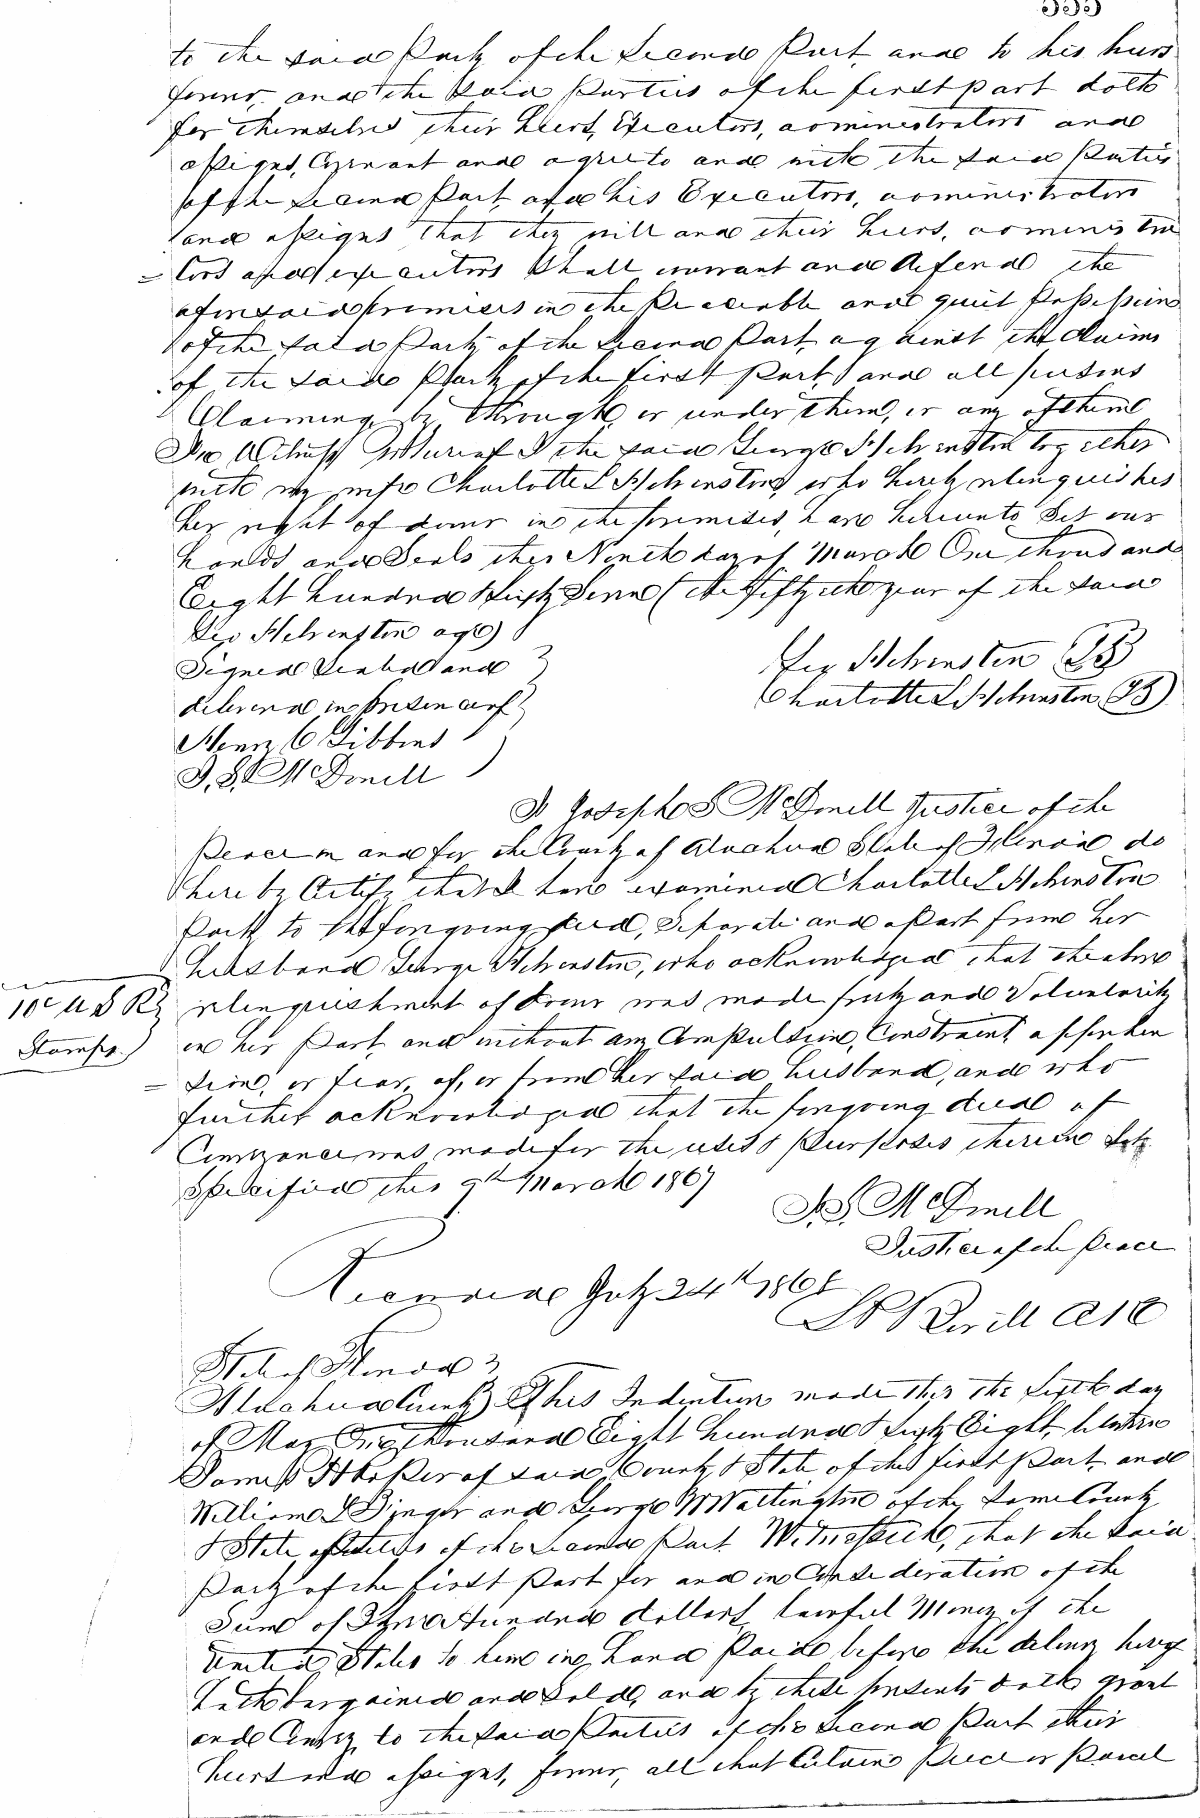 555
to the said Party of the Second Part and to his heirs
forever. and the said Parties of the first part doth
for themselves their heirs, Executors, administrators and
assigns, Covenant and agree to and with the said Parties
of the Second Part, and his Executors, administrators
and assigns that they will and their heirs, administra
= tors and executors Shall warrant and defend the
aforesaid premises in the Peaceable and quiet Possession
of the said Party of the Second Part, against the Claims
of the said Party of the first Part, and all persons
Claiming by through, or under them, or any of them
In Witness Whereof I the said George Helvenston together
with my wife Charlotte L Helvenston, who hereby relinquishes
her right of dower in the premises, have hereunto Set our
hands and Seals this Ninth day of March One thousand
Eight hundred Sixty Seven (the fiftyeth year of the said
Geo Helvenston age)
Signed Sealed and
delivered in Presence of
Geo Helvenston LS
Charlotte L Helvenston LS
Henry C Gibbons
J. S. McDonell
I Joseph S McDonell Justice of the
Peace in and for the County of Alachua State of Florida do
hereby Certify that I have examined Charlotte L Helvenston
Party to the foregoing deed, Separate and apart from her
husband George Helvenston, who acknowledged that the above
relinquishment of Dower was made freely and Voluntarily
10c U S R
Stamps.
on her Part, and without any Compulsion, Constraint, apprehen
= sion, or fear, of, or from her said husband, and who
further acknowledged that the foregoing deed of
Conveyance was made for the uses & Purposes therein
Specified this 9th March 1867
J. S. McDonell
Justice of the Peace
Recorded July 24th 1868
State of Florida
Alachua County This Indenture made this the Sixth day
of May One thousand Eight hundred & Sixty Eight, between
James of said County & State of the first Part, and
William and George of the Same County
& State of the Second Part Witnesseth, that the said
Party of the first Part for and in Consideration of the
Sum of Hundred dollars, lawful Money of the
United States to him in hand Paid before the delivery hereof
hath bargained and Sold, and by these presents doth grant
and Convey to the said Parties of the Second Part their
heirs and assigns, forever, all that Certain Piece or Parcel